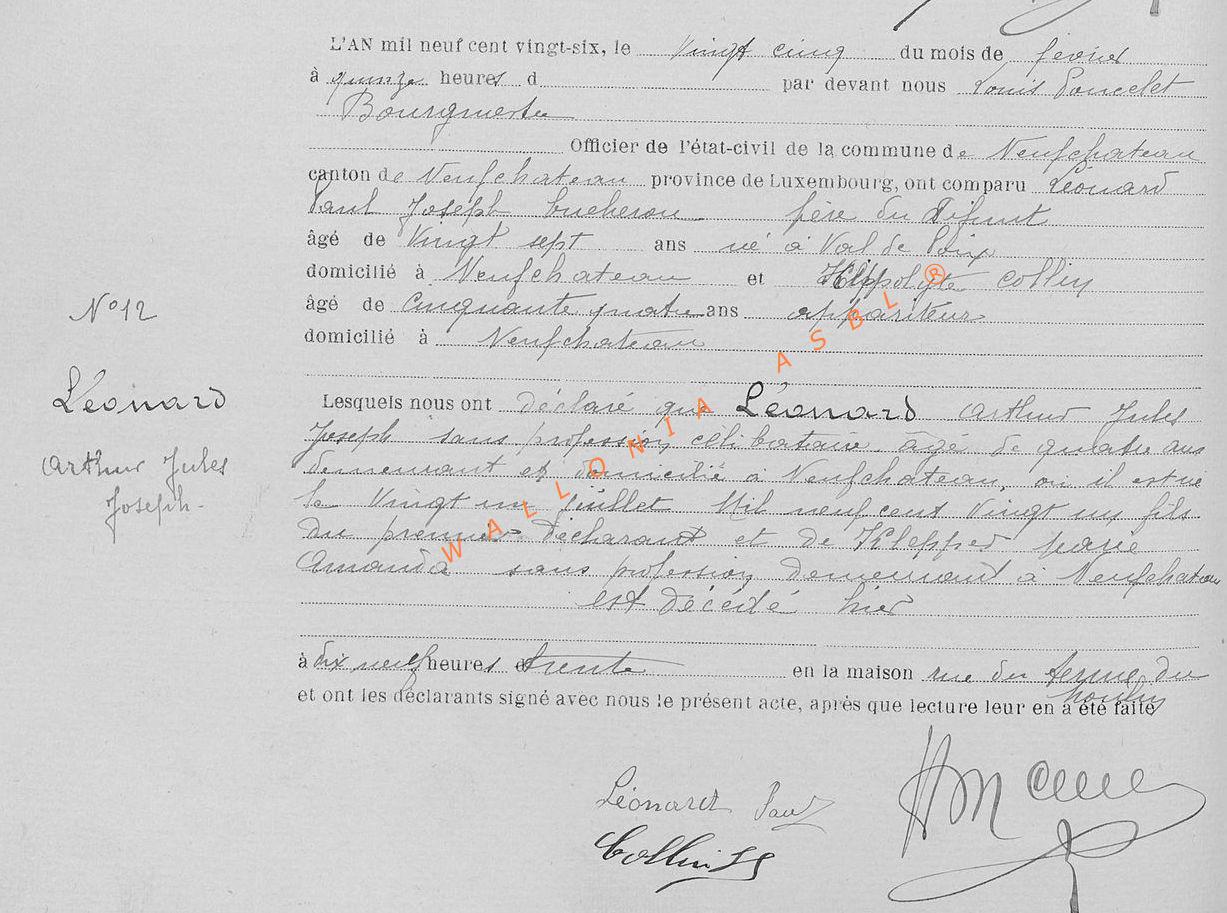 L'AN mil neuf cent vingt-six, le vingt cinq du mois de février
à quinze heures d par devant nous Louis Poncelet
Bourgmestre
Officier de l'état-civil de la commune de Neufchateau
canton de Neufchateau province de Luxembourg, ont comparu Léonard
Paul Joseph bucheron père du défunt
âgé de vingt sept ans né à Val de Poix
domicilié à Neufchateau et Hippolyte Collin
âgé de cinquante quatre ans appariteur
domicilié à Neufchateau
N° 12
Léonard
Arthur Jules
Joseph.
Lesquels nous ont déclaré que Léonard Arthur Jules
Joseph sans profession, célibataire, âgé de quatre ans
demeurant et domicilié à Neufchateau, où il est né
le vingt un juillet Mil neuf cent vingt un fils
du premier déclarant et de Klepper Marie
Amanda sans profession demeurant à Neufchateau
est décédé hier
à dix neuf heures trente en la maison rue du terme du
moulin
et ont les déclarants signé avec nous le présent acte, après que lecture leur en a été faite
Léonard Paul
Collin
WALLONIA ASBL ®